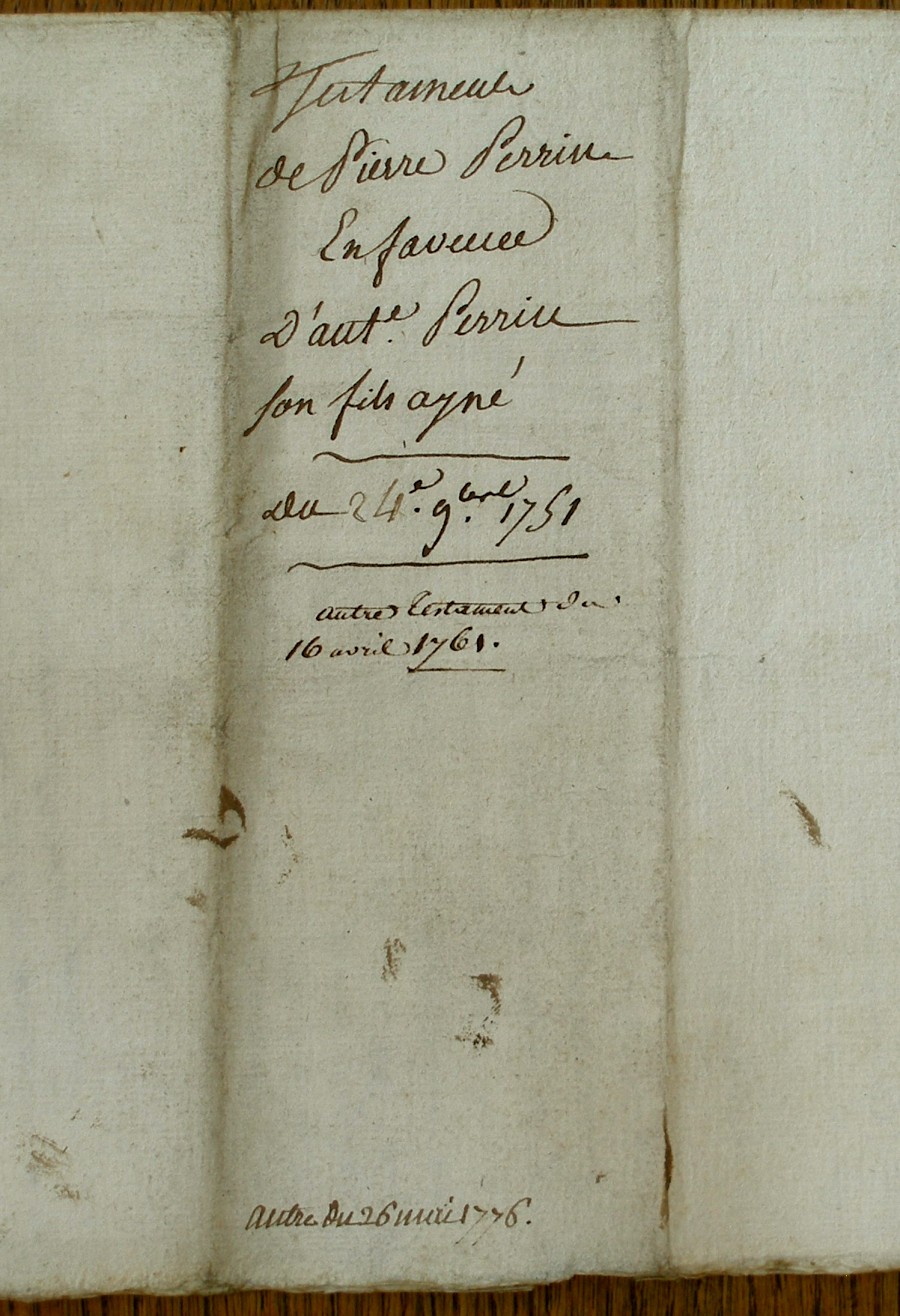 Testament
de Pierre Perrin
En faveur
D'ant.e Perrin
son fils ayné
du 24.e 9.bre 1751
autre testament du
16 avril 1761.
autre du 26 mai 1776.